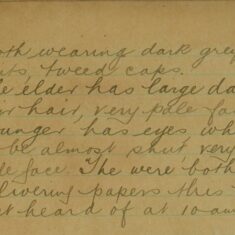 oth wearing dark grey
ts, tweed caps.
e elder has large da
r hair, very pale fa
unger has eyes wh
be almost shut very
le face. The were both
livering papers this
t heard of at 10 am